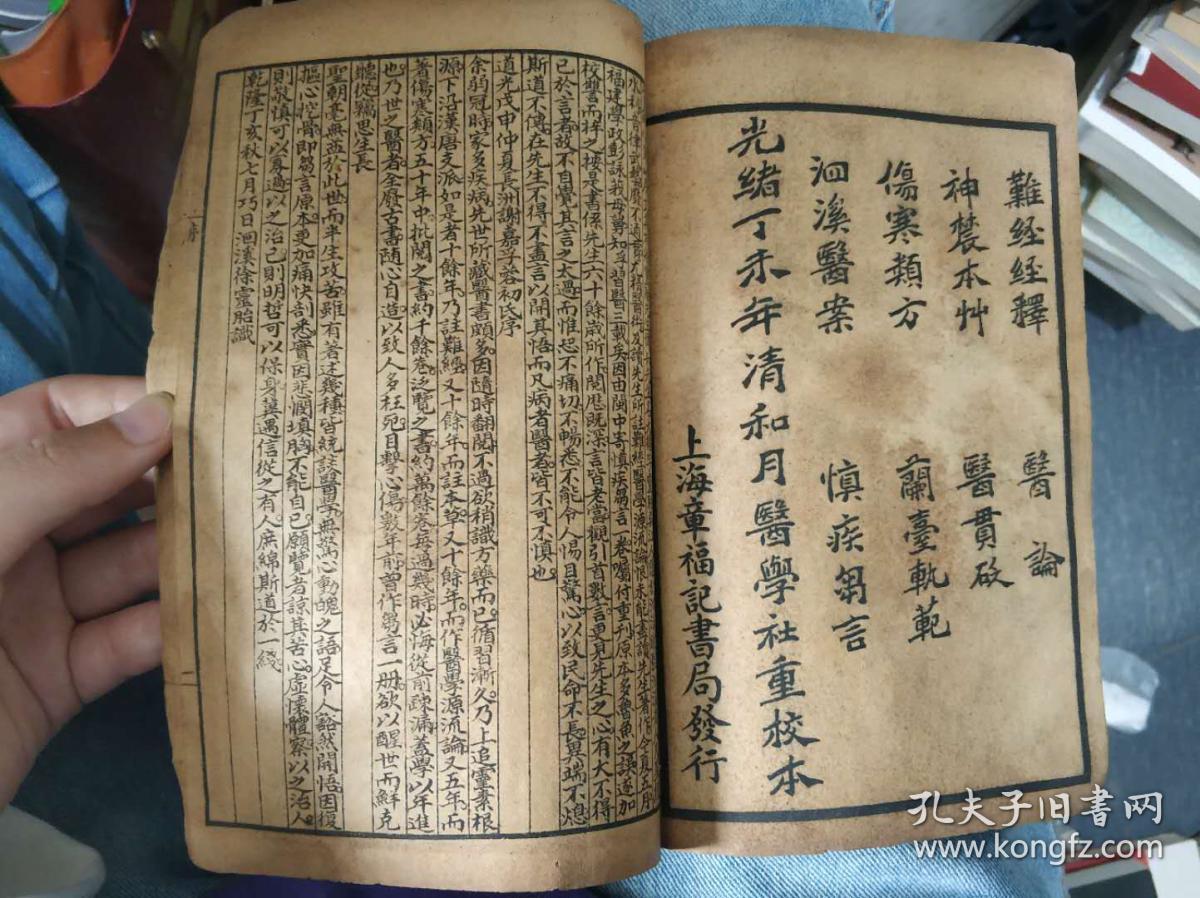 難經經釋 醫論
神農本艸 醫貫砭
傷寒類方 蘭臺軌範
洄溪醫案 慎疾芻言
光緒丁未年清和月醫學社重校本
上海章福記書局發行
福建學政彭詠莪母舅知孚習醫三載矣因由閩中寄慎疾芻言一卷囑付重刊原本多魯魚之誤遂加
校讐而梓之按是書係先生六十餘歲所作閱歷既深言皆老當觀引首數言更見先生之心有大不得
已於言者故不自覺其言之太過而惟恐不痛切不暢悉不能令人惕目驚心以致民命不長異端不熄
斯道不傳在先生不得不盡言以開其悟而凡病者醫者皆不可不慎也
道光戊申仲夏長洲謝嘉孚蓉初氏序
余弱冠時家多疾病先世所藏醫書頗多因隨時翻閱不過欲稍識方藥而已循習漸久乃上追靈素根
源下沿漢唐支派如是者十餘年乃註難經又十餘年而註本草又十餘年而作醫學源流論又五年而
著傷寒類方五十年中批閱之書約千餘卷泛覽之書約萬餘卷每過幾時必悔從前疎漏蓋學以年進
也乃世之醫者全廢古書隨心自造以致人多枉死目擊心傷數年前曾作芻言一册欲以醒世而鮮克
聽從竊思生長
聖朝毫無益於此世而半生攻苦雖有著述幾種皆統談醫學無驚心動魄之語足令人豁然開悟因復
摳心挖骨即芻言原本更加痛快剖悉實因悲憫填胸不能自已願覽者諒其苦心虛懷體察以之治人
則敬慎可以寡過以之治己則明哲可以保身冀遇信從之有人庶綿斯道於一綫
乾隆丁亥秋七月巧日洄溪徐靈胎識
序
一
孔夫子旧书网
www.kongfz.com